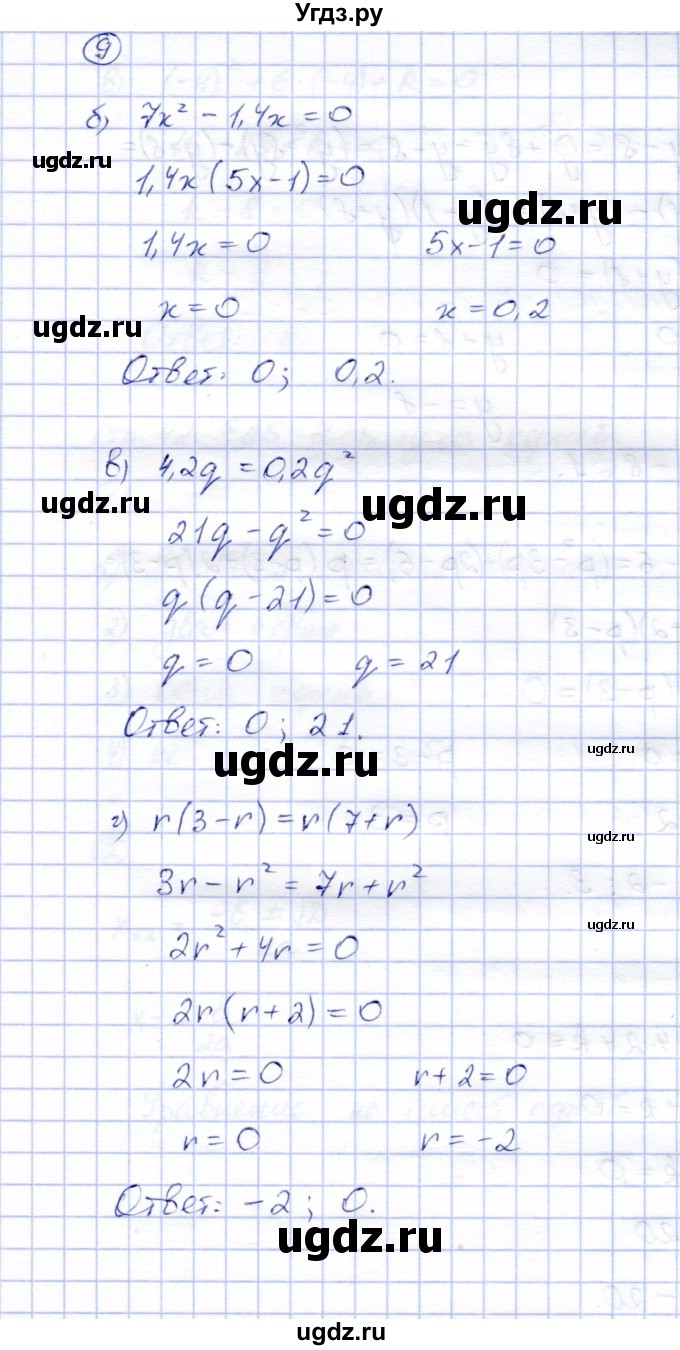 Угдз.ру
9
б) 7x² − 1,4x = 0
ugdz.ru
1,4x(5x−1)=0
ugdz.ru
1,4x=0 5x−1=0
x=0 x=0,2
ugdz.ru
Ответ: 0; 0,2.
в) 4,2q = 0,2q²
ugdz.ru ugdz.ru
21q − q² = 0
q(q−21)=0
q=0 q=21
Ответ: 0; 21.
ugdz.ru ugdz.ru
г) r(3−r)=r(7+r)
ugdz.ru
3r − r² = 7r + r²
ugdz.ru
2r² + 4r = 0
2r(r+2)=0
2r=0 r+2=0
r=0 r=−2
Ответ: −2; 0.
ugdz.ru
ugdz.ru